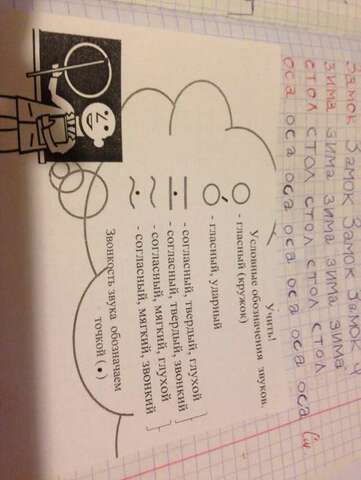 Замок Замок Замок Замок ч
зима зима зима зима зима
стол стол стол стол стол
оса оса оса оса оса оса оса
Учить!
Условные обозначения звуков.
- гласный (кружок)
- гласный, ударный
- согласный, твердый, глухой
- согласный, твердый, звонкий
- согласный, мягкий, глухой
- согласный, мягкий, звонкий
Звонкость звука обозначаем
точкой (•)